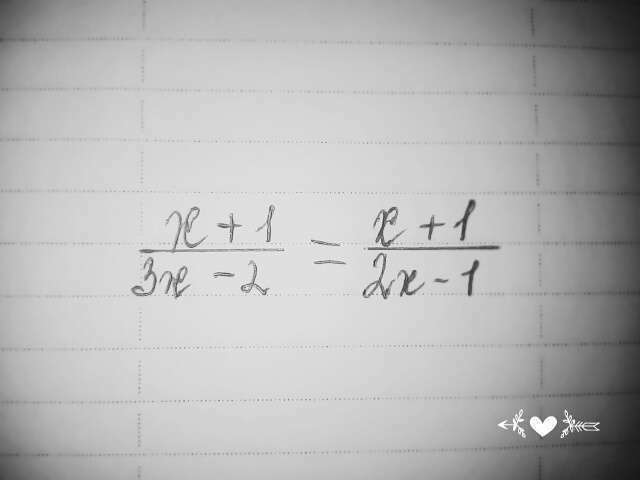 x + 1 / 3x - 2 = x + 1 / 2x - 1